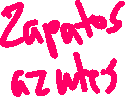 Zapatos
azules